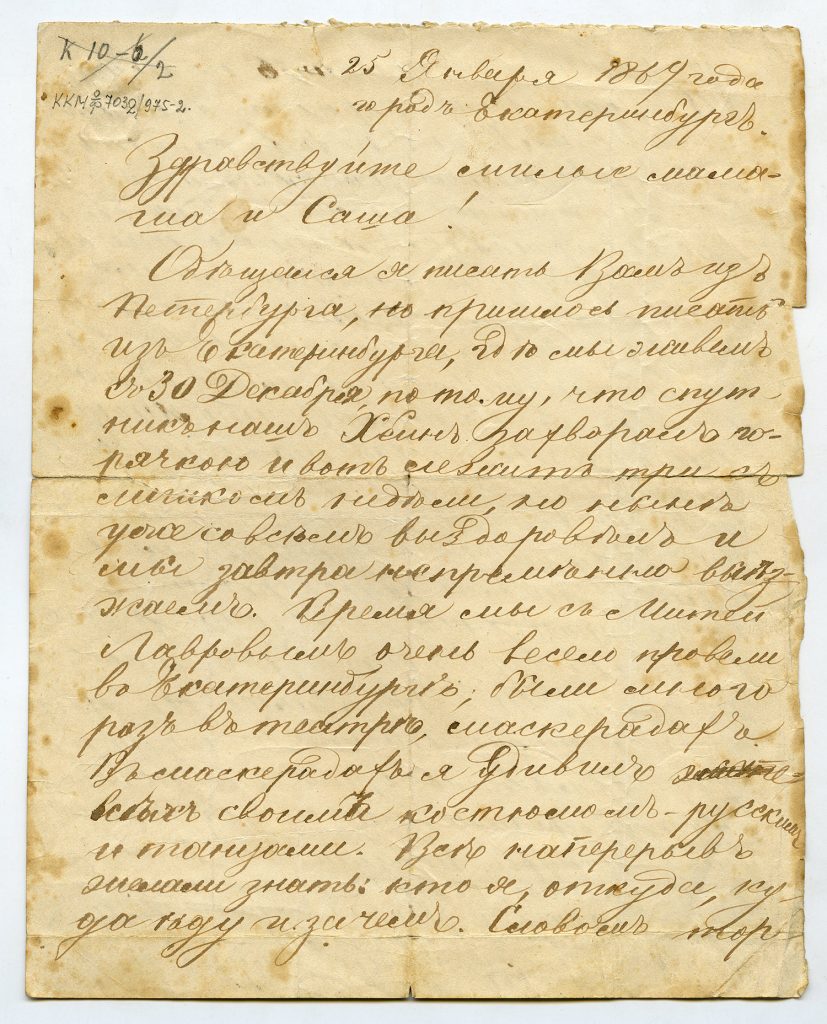 К 10-6/2
ККМ 7032/975-2.
25 Января 1869 года
городъ Екатеринбургъ.
Здравствуйте милые мама-
ша и Саша!
Обѣщался я писать Вамъ изъ
Петербурга, но пришлось писать
изъ Екатеринбурга, гдѣ мы живемъ
съ 30 Декабря, потому, что спут
никъ нашъ захворалъ го-
рячкою и вотъ лежитъ три съ
лишкомъ недѣли, но нынѣ
уже совсѣмъ выздоровѣлъ и
мы завтра непремѣнно выѣз-
жаемъ. Время мы съ Митей
Лавровымъ очень весело провели
во Екатеринбургѣ, были много
разъ въ театрѣ, маскерадахъ
Въ маскерадахъ я удивилъ
всѣхъ своимъ костюмомъ-русскимъ
и танцами. Всѣ наперерывъ
желали знать: кто я, откуда, ку-
да ѣду и зачемъ. Словомъ тор